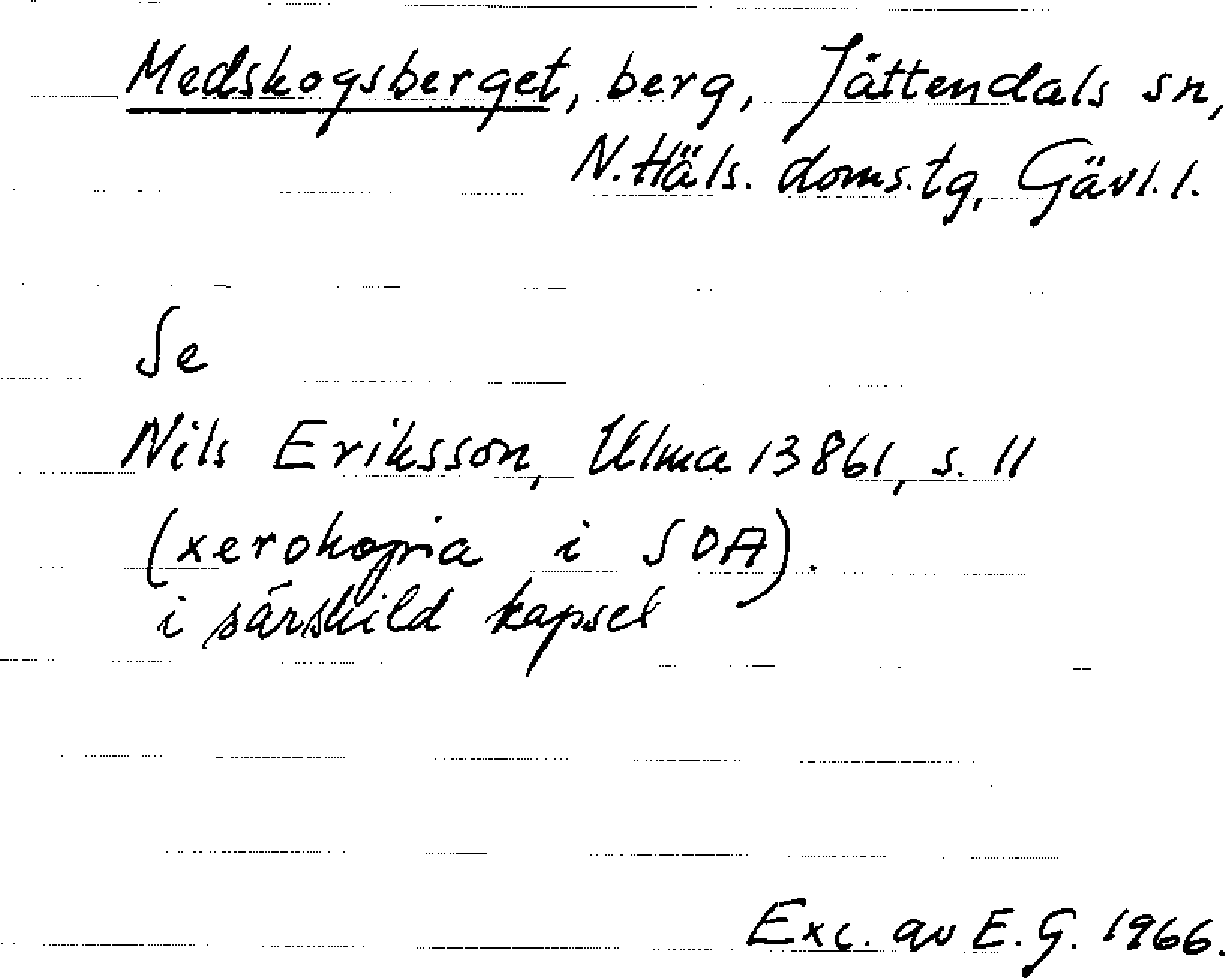 Medskogsberget, berg, Jättendals sn,
N. Häls. doms. tg, Gävl. l.
Se
Nils Eriksson, Ulma 13861, s. 11
(xerokopia i SOA).
i särskild kapsel
Exc. av E. G. 1966.